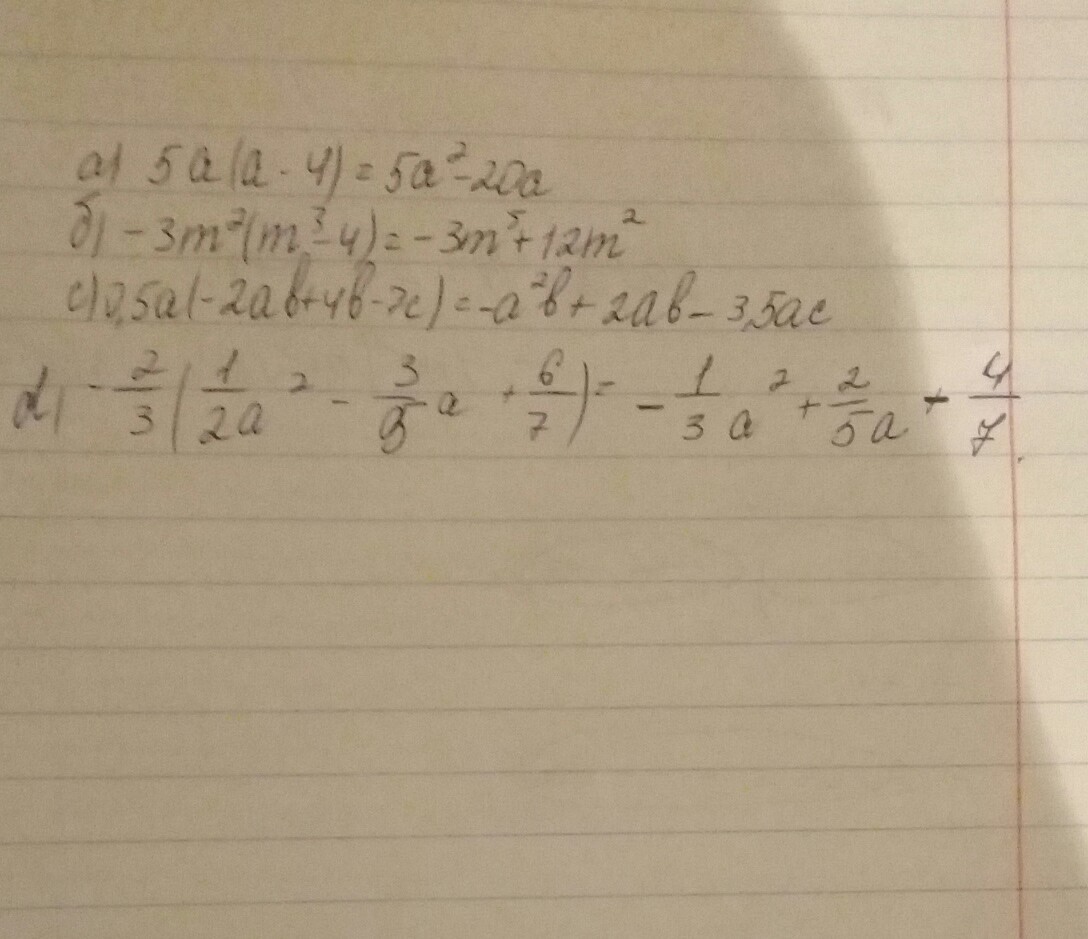 а) 5a(a - 4) = 5a² - 20a
б) -3m²(m³ - 4) = -3m⁵ + 12m²
c) 0,5a(-2ab + 4b - 7c) = -a²b + 2ab - 3,5ac
d) -2/3(1/2a² - 3/5a + 6/7) = -1/3a² + 2/5a - 4/7